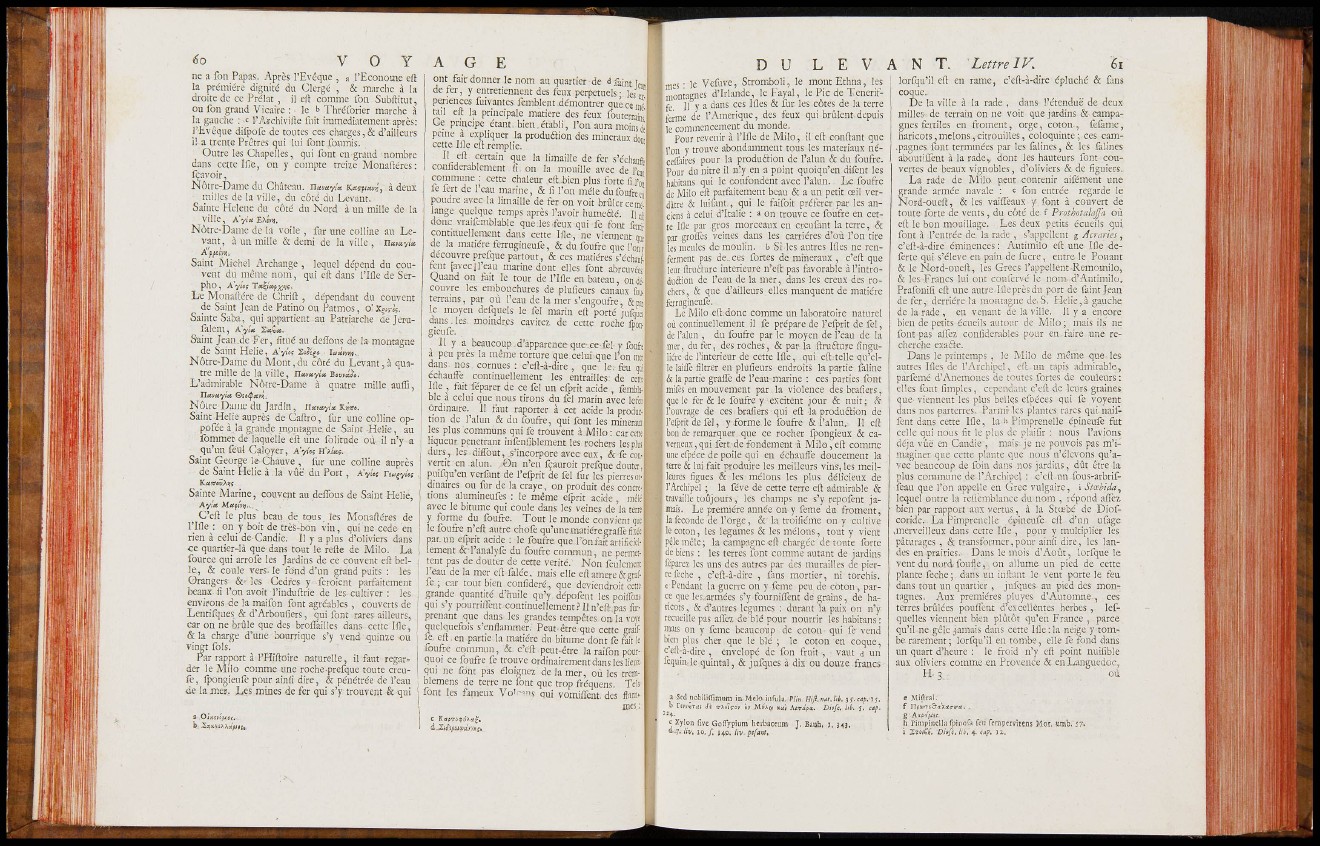 60 V O Y A G E
ne a ſon Papas. Après l'Evêque, a l'Econome eſt
la prémiére dignité du Clergé, & marche à la
droite de ce Prélat, il eſt comme ſon Subſtitut,
ou ſon grand Vicaire : le b Thréſorier marche à
la gauche : c l'Archiviſte ſuit immediatement après:
l'Evêque diſpoſe de toutes ces charges, & d'ailleurs
il a trente Prêtres qui lui ſont ſoumis.
Outre les Chapelles, qui ſont en grand nombre
dans cette Iſle, on y compte treize Monaſtéres:
ſçavoir,
Nôtre-Dame du Château. à deux
milles de la ville, du côté du Levant.
Sainte Helene du côté du Nord à un mille de la
ville,
Nôtre-Dame de la voile, ſur une colline au Le-
vant, à un mille & demi de la ville,
Saint Michel Archange, lequel dépend du cou-
vent du même nom, qui eſt dans l'Iſle de Ser-
pho,
Le Monaſtére de Chriſt, dépendant du couvent
de Saint Jean de Patino ou Patmos,
Sainte Saba, qui appartient au Patriarche de Jeru-
ſalem,
Saint Jean de Fer, ſitué au deſſous de la montagne
de Saint Helie,
Nôtre-Dame du Mont, du côté du Levant, à qua-
tre mille de la ville,
L'admirable Nôtre-Dame à quatre mille auſſi,
Nôtre Dame du Jardin,
Saint Helie auprès de Caſtro, ſur une colline op-
poſée à la grande montagne de Saint Helie, au
ſommet de laquelle eſt une ſolitude où il n'y a
qu'un ſeul Caloyer,
Saint George le Chauve, ſur une colline auprès
de Saint Helie à la vûë du Port,
Sainte Marine, couvent au deſſous de Saint Helie,
C'eſt le plus beau de tous les Monaſtéres de
l'Iſle : on y boit de très-bon vin, qui ne cede en
rien à celui de Candie. Il y a plus d'oliviers dans
ce quartier-là que dans tout le reſte de Milo. La
ſource qui arroſe les Jardins de ce couvent eſt bel-
le, & coule vers le fond d'un grand puits : les
Orangers & les Cedres y ſeroient parfaitement
beaux ſi l'on avoit l'induſtrie de les cultiver : les
environs de la maiſon ſont agréables, couverts de
Lentiſques & d'Arbouſiers, qui ſont rares ailleurs,
car on ne brûle que des broſſailles dans cette Iſle,
& la charge d'une bourrique s'y vend quinze ou
vingt ſols.
Par rapport à l'Hiſtoire naturelle, il faut regar-
der le Milo comme une roche preſque toute creu-
ſe, ſpongieuſe pour ainſi dire, & pénétrée de l'eau
de la mer. Les mines de fer qui s'y trouvent & qui
ont fait donner le nom au quartier de d ſaint Jean
de fer, y entretiennent des feux perpetuels; les ex-
periences ſuivantes ſemblent démontrer que ce mé-
tail eſt la principale matiere des feux ſouterrains.
Ce principe étant bien établi, l'on aura moins de
peine à expliquer la production des mineraux dont
cette Iſle eſt remplie.
Il eſt certain que la limaille de fer s'échauffe
conſiderablement ſi on la mouille avec de l'eau
commune : cette chaleur eſt bien plus forte ſi l'on
ſe ſert de l'eau marine, & ſi l'on mêle du ſouffre en
poudre avec la limaille de fer on voit brûler ce mê-
lange quelque temps après l'avoir humecté. Il eſt
donc vraiſemblable que les feux qui ſe font ſentir
continuellement dans cette Iſle, ne viennent que
de la matiére ferrugineuſe, & du ſouffre que l'on y
découvre preſque partout, & ces matiéres s'échauf-
fent avec l'eau marine dont elles ſont abreuvées.
Quand on fait le tour de l'Iſle en bateau, on dé-
couvre les embouchures de pluſieurs canaux ſou-
terrains, par où l'eau de la mer s'engouffre, &
le moyen deſquels le ſel marin eſt porté juſques
dans les moindres cavitez de cette roche ſpon-
gieuſe.
Il y a beaucoup d'apparence que ce ſel y ſouffre
à peu près la même torture que celui que l'on met
dans nos cornues : c'eſt-à-dire, que le feu qui
échauffe continuellement les entrailles de cette
Iſle, fait ſéparer de ce ſel un eſprit acide, ſembla-
ble à celui que nous tirons du ſel marin avec le feu
ordinaire. Il faut raporter à cet acide la produc-
tion de l'alun & du ſouffre, qui ſont les mineraux
les plus communs qui ſe trouvent à Milo : car cette
liqueur penetrant inſenſiblement les rochers les plus
durs, les diſſout, s'incorpore avec eux, & ſe con-
vertit en alun. On n'en ſçauroit preſque douter,
puiſqu'en verſant de l'eſprit de ſel ſur les pierres or-
dinaires ou ſur de la craye, on produit des concre-
tions alumineuſes : le même eſprit acide, mêlé
avec le bitume qui coule dans les veines de la terre
y forme du ſouffre. Tout le monde convient que
le ſouffre n'eſt autre choſe qu'une matiére graſſe fixée
par un eſprit acide : le ſouffre que l'on fait artificiel-
lement & l'analyſe du ſouffre commun, ne permet-
tent pas de douter de cette verité. Non ſeulement
l'eau de la mer eſt ſalée, mais elle eſt amere & graſ-
ſe ; car tout bien conſideré, que deviendroit cette
grande quantité d'huile qu'y dépoſent les poiſſons
qui s'y pourriſſent continuellement? Il n'eſt pas ſur-
prenant que dans les grandes tempêtes on la voye
quelquefois s'enflammer. Peut-être que cette graiſ-
ſe eſt en partie la matiére du bitume dont ſe fait le
ſouffre commun, & c'eſt peut-être la raiſon pour-
quoi ce ſouffre ſe trouve ordinairement dans les lieux
qui ne ſont pas éloignez de la mer, où les trem-
blemens de terre ne ſont que trop fréquens. Tels
ſont les fameux Volcans qui vomiſſent des flam-
mes:
D U L E V A N T. Lettre IV. 61
mes : le Veſuve, Stromboli, le mont Ethna, les
montagnes d'Irlande, le Fayal, le Pic de Tenerif-
fe. Il y a dans ces Iſles & ſur les côtes de la terre
ferme de l'Amerique, des feux qui brûlent depuis
le commencement du monde.
Pour revenir à l'Iſle de Milo, il eſt conſtant que
l'on y trouve abondamment tous les materiaux né-
ceſſaires pour la production de l'alun & du ſouffre.
Pour du nitre il n'y en a point quoiqu'en diſent les
habitans qui le confondent avec l'alun. Le ſouffre
de Milo eſt parfaitement beau & a un petit œil ver-
dâtre & luiſant, qui le faiſoit préferer par les an-
ciens à celui d'Italie : a on trouve ce ſouffre en cet-
te Iſle par gros morceaux en creuſant la terre, &
par groſſes veines dans les carriéres d'où l'on tire
les meules de moulin. b Si les autres Iſles ne ren-
ferment pas de ces ſortes de mineraux, c'eſt que
leur ſtructure interieure n'eſt pas favorable à l'intro-
duction de l'eau de la mer, dans les creux des ro-
chers, & que d'ailleurs elles manquent de matiére
ferrugineuſe.
Le Milo eſt donc comme un laboratoire naturel
où continuellement il ſe prépare de l'eſprit de ſel,
de l'alun, du ſouffre par le moyen de l'eau de la
mer, du fer, des roches, & par la ſtructure ſingu-
liére de l'interieur de cette Iſle, qui eſt telle qu'el-
le laiſſe filtrer en pluſieurs endroits la partie ſaline
& la partie graſſe de l'eau marine : ces parties ſont
miſes en mouvement par la violence des braſiers,
que le fer & le ſouffre y excitent jour & nuit; &
l'ouvrage de ces braſiers qui eſt la production de
l'eſprit de ſel, y forme le ſouffre & l'alun. Il eſt
bon de remarquer que ce rocher ſpongieux & ca-
verneux, qui ſert de fondement à Milo, eſt comme
une eſpéce de poile qui en échauffe doucement la
terre & lui fait produire les meilleurs vins, les meil-
leures figues & les mélons les plus délicieux de
l'Archipel ; la ſéve de cette terre eſt admirable &
travaille toûjours, les champs ne s'y repoſent ja-
mais. La premiére année on y ſeme du froment,
la ſeconde de l'orge, & la troiſiéme on y cultive
le coton, les legumes & les mélons, tout y vient
pêle mêle; la campagne eſt chargée de toute ſorte
de biens : les terres ſont comme autant de jardins
ſéparez les uns des autres par des murailles de pier-
re ſeche, c'eſt-à-dire, ſans mortier, ni torchis.
c Pendant la guerre on y ſeme peu de coton, par-
ce que les armées s'y fourniſſent de grains, de ha-
ricots, & d'autres legumes : durant la paix on n'y
recueille pas aſſez de blé pour nourrir les habitans :
mais on y ſeme beaucoup de coton qui ſe vend
bien plus cher que le blé ; le coton en coque,
c'eſt-à-dire, envelopé de ſon fruit, vaut d un
ſequin le quintal, & juſques à dix ou douze francs
lorſqu'il eſt en rame, c'eſt-à-dire épluché & ſans
coque.
De la ville à la rade, dans l'étenduë de deux
milles de terrain on ne voit que jardins & campa-
gnes fertiles en froment, orge, coton, ſeſame,
haricots, melons, citrouilles, coloquinte ; ces cam-
pagnes ſont terminées par les ſalines, & les ſalines
aboutiſſent à la rade, dont les hauteurs ſont cou-
vertes de beaux vignobles, d'oliviers & de figuiers.
La rade de Milo peut contenir aiſément une
grande armée navale : e ſon entrée regarde le
Nord-oueſt, & les vaiſſeaux y ſont à couvert de
toute ſorte de vents, du côté de f Prothotalaſſa où
eſt le bon mouillage. Les deux petits écueils qui
ſont à l'entrée de la rade, s'appellent g Acraries,
c'eſt-à-dire éminences : Antimilo eſt une Iſle de-
ſerte qui s'éleve en pain de ſucre, entre le Ponant
& le Nord-oueſt, les Grecs l'appellent Remomilo,
& les Francs lui ont conſervé le nom d'Antimilo.
Praſoniſi eſt une autre Iſle près du port de ſaint Jean
de fer, derriére la montagne de S. Helie, à gauche
de la rade, en venant de la ville. Il y a encore
bien de petits écueils autour de Milo ; mais ils ne
ſont pas aſſez conſiderables pour en faire une re-
cherche exacte.
Dans le printemps, le Milo de même que les
autres Iſles de l'Archipel, eſt un tapis admirable,
parſemé d'Anemones de toutes ſortes de couleurs :
elles ſont ſimples, cependant c'eſt de leurs graines
que viennent les plus belles eſpéces qui ſe voyent
dans nos parterres. Parmi les plantes rares qui naiſ-
ſent dans cette Iſle, la h Pimprenelle épineuſe fut
celle qui nous fit le plus de plaiſir : nous l'avions
déja vûë en Candie, mais je ne pouvois pas m'i-
maginer que cette plante que nous n'élevons qu'a-
vec beaucoup de ſoin dans nos jardins, dût être la
plus commune de l'Archipel : c'eſt un ſous-arbriſ-
ſeau que l'on appelle en Grec vulgaire, i Stœbida,
lequel outre la reſſemblance du nom, répond aſſez
bien par rapport aux vertus, à la Stœbé de Dioſ-
coride. La Pimprenelle épineuſe eſt d'un uſage
merveilleux dans cette Iſle, pour y multiplier les
pâturages, & transformer, pour ainſi dire, les lan-
des en prairies. Dans le mois d'Août, lorſque le
vent du nord ſouffle, on allume un pied de cette
plante ſeche; dans un inſtant le vent porte le feu
dans tout un quartier, juſques au pied des mon-
tagnes. Aux premiéres pluyes d'Automne, ces
terres brûlées pouſſent d'excellentes herbes, leſ-
quelles viennent bien plûtôt qu'en France, parce
qu'il ne gêle jamais dans cette Iſle : la neige y tom-
be rarement ; lorſqu'il en tombe, elle ſe fond dans
un quart d'heure : le froid n'y eſt point nuiſible
aux oliviers comme en Provence & en Languedoc,
H 3 où
a Sed nobiliſſimum in Melo inſula. Plin. Hiſt. nat. lib. 35. cap. 15.
c Xylon ſive Goſſypium herbaceum J. Bauh. 1. 343.
e Miſtral.
h Pimpinella ſpinoſa ſeu ſempervirens Mor. umb. 57.